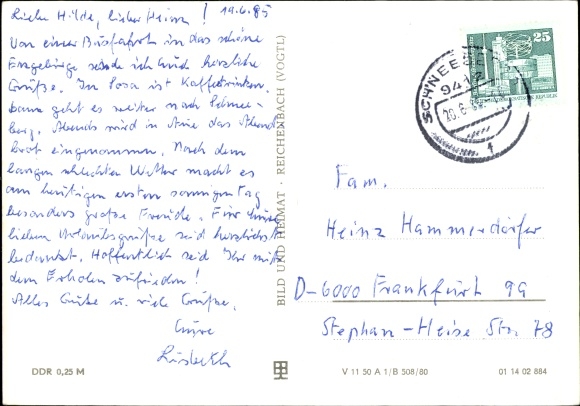 Liebe Hilde, lieber Heinz! 19.6.85
Von einer Busfahrt in das schöne
Erzgebirge sende ich Euch herzliche
Grüße. In Sosa ist Kaffeetrinken,
dann geht es weiter nach Schnee-
berg. Abends wird in Aue das Abend
brot eingenommen. Nach dem
langen schlechten Wetter macht es
am heutigen ersten sonnigen Tag
besonders große Freude. Für Eure
lieben Urlaubsgrüße seid herzlichst
bedankt. Hoffentlich seid Ihr mit
dem Erholen zufrieden!
Alles Gute u. viele Grüße,
Eure
Lisbeth
DDR 0,25 M
BILD UND HEIMAT · REICHENBACH (VOGTL)
25
SCHNEEBERG 1
9412
20.6.85
Fam.
Heinz Hammerdörfer
D-6000 Frankfurt 99
Stephan-Heise Str. 78
V 11 50 A 1/B 508/80
01 14 02 884